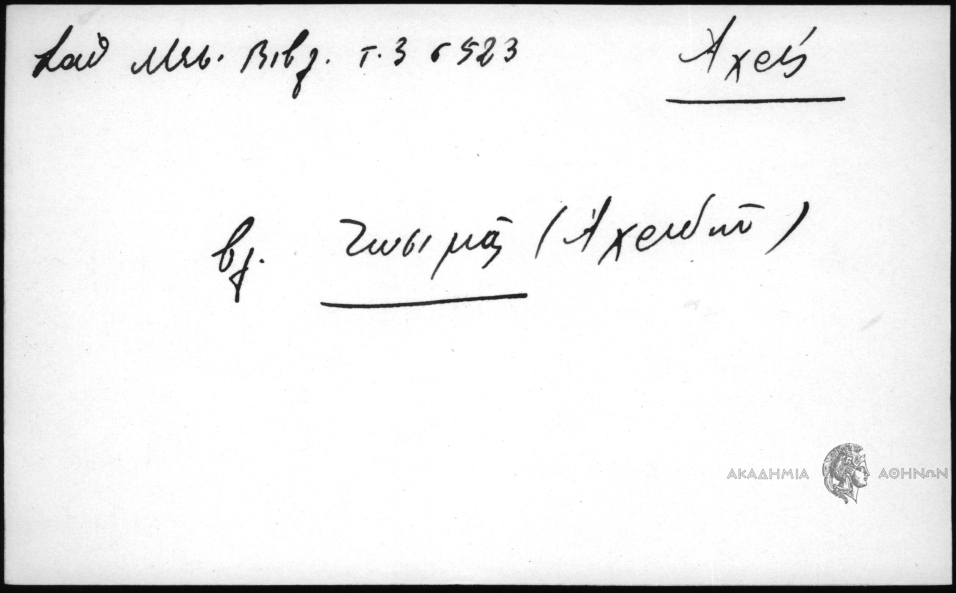 Σαθ Μεσ. Βιβλ. τ. 3 σ 523 Ἀχελῆς
βλ. Ζωσιμᾶς (Ἀχελιδῶν)
ΑΚΑΔΗΜΙΑ ΑΘΗΝΩΝ